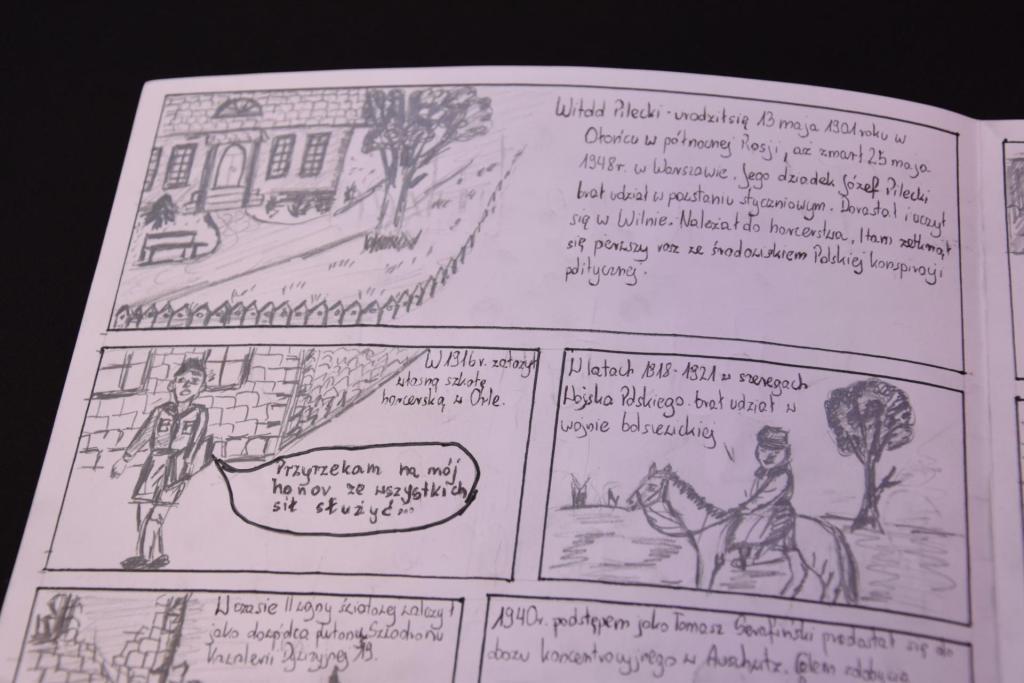 Witold Pilecki - urodził się 13 maja 1901 roku w
Ołońcu w północnej Rosji, aż zmarł 25 maja
1948r. w Warszawie. Jego dziadek Józef Pilecki
brał udział w powstaniu styczniowym. Dorastał i uczył
się w Wilnie. Należał do harcerstwa. I tam zetknął
się pierwszy raz ze środowiskiem Polskiej konspiracji
politycznej.
W 1916r. założył
własną szkołę
harcerską w Orle.
Przyrzekam na mój
honor ze wszystkich
sił służyć...
W latach 1918-1921 w szeregach
Wojska Polskiego brał udział w
wojnie bolszewickiej
W czasie II wojny światowej walczył
jako dowódca plutonu Szwadronu
Kawalerii Dywizyjnej 19.
1940r. podstępem jako Tomasz Serafiński przedostał się do
obozu koncentracyjnego w Auschwitz. Celem zdobycia